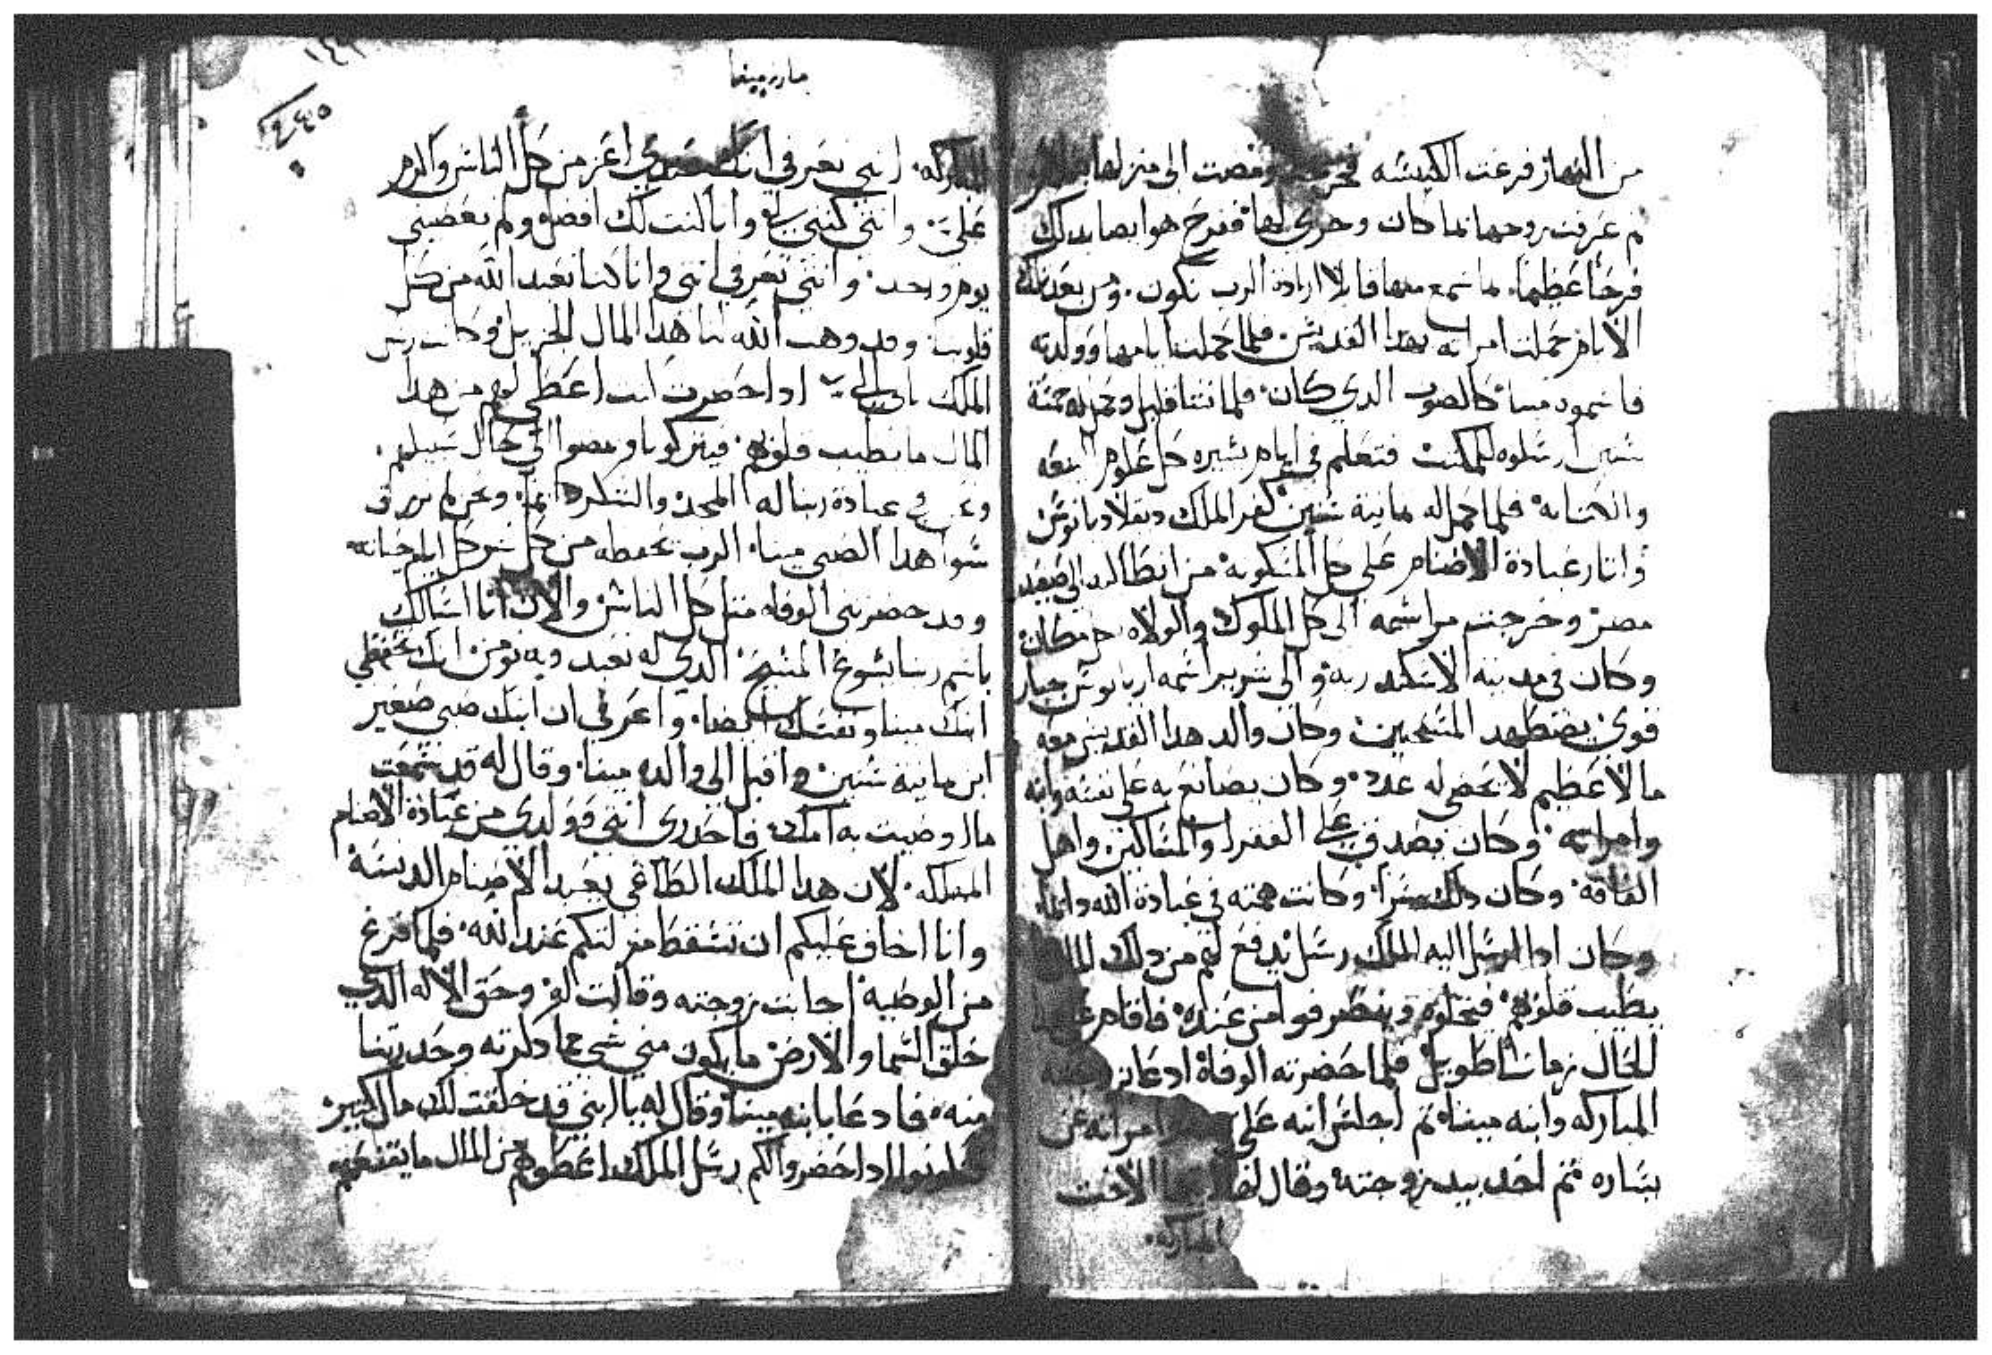 من النهار فرغت الكنيسه فخرجت ومضت الى منزلها
ثم عرفت زوجها بما كان وجرى لها ففرح هو ايضا بدلك
فرحا عظيما ما سمع منها قايلا ارادة الرب تكون ومن بعد تلك
الايام حملت امراته بهدا القديس فلما كملت ايامها وولدته
فاسموه مينا كالصوت الدي كان فلما نشا قليل وكمل له خمسة
سنين ارسلوه للمكتب فتعلم في ايام يسيره كل علوم البيعه
والكتابه فلما كمل له تمانية سنين كفر الملك دقلاديانوس
واثار عبادة الاصنام على كل المسكونه من انطاكيه الى صعيد
مصر وخرجت مراسمه الى كل الملوك والولاه بكل مكان
وكان في مدينه الاسكندريه والي شرير اسمه اريانوس جبار
قوي يضطهد المسيحيين وكان والد هدا القديس معه
مالا عظيم لا يحصى له عدد وكان يصانع به على نفسه وابنه
وامراته وكان يصدق على الفقرا والمساكين واهل
الفاقه وكان دلك سرا وكانت همته في عبادة الله دايما
وكان ادا ارسل اليه الملك رسل يدفع لهم من دلك المال
يطيب قلوبهم فيتخلوه وينصرفوا من عنده فاقام على هدا
الحال زمانا طويل فلما حضرته الوفاة ادعا بزوجته
المباركه وابنه مينا ثم اجلس ابنه على امراته عن
يساره ثم اخد بيد زوجته وقال لها ايتها الاخت
المباركه
مارى مينا
١٤٦
المباركه انتي تعرفي انك عندي اعز من كل الناس واكرم
علي وانتي كنتي لي وانا كنت لك افضل ولم تغضبني
يوم واحد وانتي تعرفي انتي وانا كنا نعبد الله من كل
قلوبنا وقد وهب الله لنا هدا المال الجزيل وكانت رسل
الملك ياتي الي ادا حضرت انت اعطي لهم من هدا
المال ما يطيب قلوبهم فيتركونا ومضوا الى حال سبيلهم
ونحن في عبادة ربنا له المجد والشكر دايما ونحن لم نرزق
سوا هدا الصبي مينا الرب يحفظه من كل شر كل ايام حياته
وقد حضرتني الوفاه مثل كل الناس والان انا اسالك
باسم ربنا يسوع المسيح الدي له نعبد وبه نومن انك تحفظي
ابنك مينا ونفسك ايضا واعرفي ان ابنك صبي صغير
ابن تمانية سنين واقبل الى والده مينا وقال له قد سمعت
ما اوصيت به امك فاحدري انتي وولدي من عبادة الاصنام
المهلكه لان هدا الملك الطاغي يعبد الاصنام الدنسة
وانا اخاف عليكم ان تسقط منزلتكم عند الله فلما فرغ
من الوصية اجابت زوجته وقالت له وحق الاله الدي
خلق السما والارض ما يكون مني شي مما دكرته وحدرتينا
منه فادعا بابنه مينا وقال له يا ابني قد خلفت لك مال كثير
ادا حضروا لكم رسل الملك اعطوهم من المال ما يقنعهم